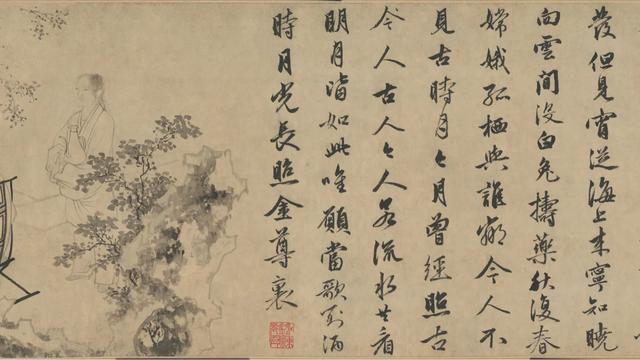 發但見宵從海上来寧知曉
向雲間没白兔擣藥秋復春
嫦娥孤栖與誰鄰今人不
見古時月今月曾經照古
今人古人今人若流水共看
明月皆如此唯願當歌對酒
時月光長照金尊裏